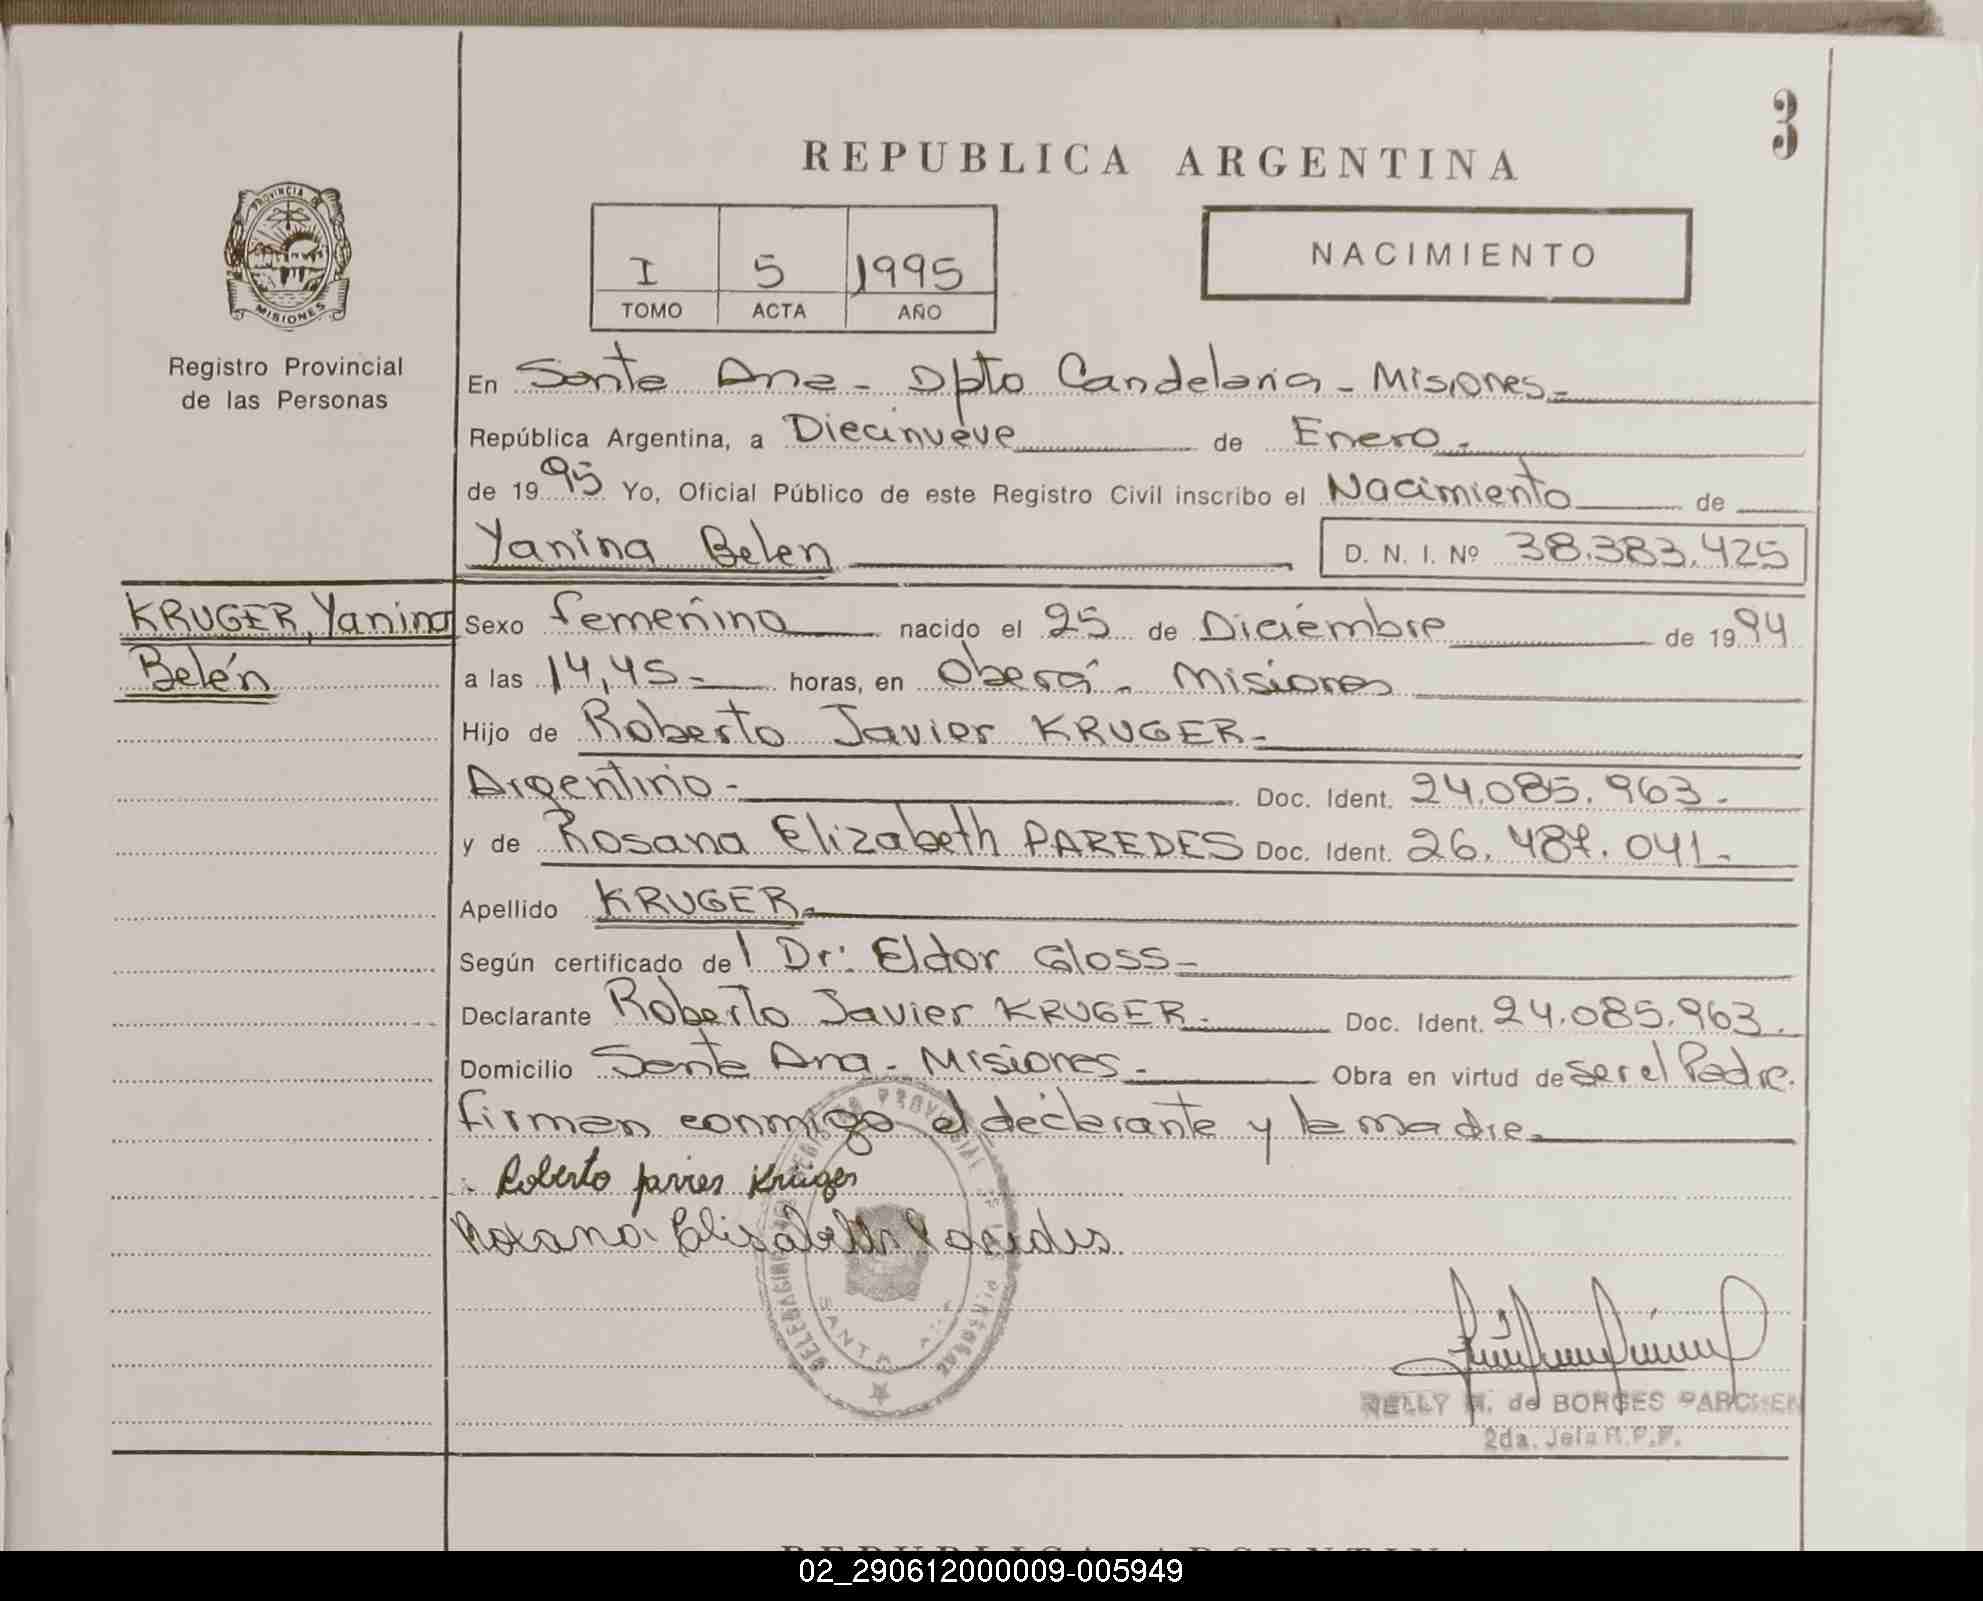 3
REPUBLICA ARGENTINA
PROVINCIA DE
MISIONES
Registro Provincial
de las Personas
I 5 1995
TOMO ACTA AÑO
NACIMIENTO
En Santa Ana - Dpto Candelaria - Misiones -
República Argentina, a Diecinueve de Enero -
de 1995 Yo, Oficial Público de este Registro Civil inscribo el Nacimiento de
Yanina Belen D. N. I. Nº 38.383.425
KRUGER, Yanina
Belén
Sexo femenina nacido el 25 de Diciembre de 1994
a las 14,45 - horas, en Oberá - Misiones
Hijo de Roberto Javier KRUGER -
Argentino - Doc. Ident. 24.085.963 -
y de Rosana Elizabeth PAREDES Doc. Ident. 26.487.041 -
Apellido KRUGER -
Según certificado del Dr: Eldor Gloss -
Declarante Roberto Javier KRUGER - Doc. Ident. 24.085.963.
Domicilio Santa Ana - Misiones - Obra en virtud de ser el Padre.
firman conmigo el declarante y la madre -
Roberto Javier Kruger
Rosana Elisabeth Paredes
SANTA ANA
NELLY de BORGES PARCHEN
2da. Jefa R.P.P.
REPUBLICA ARGENTINA
02_290612000009-005949